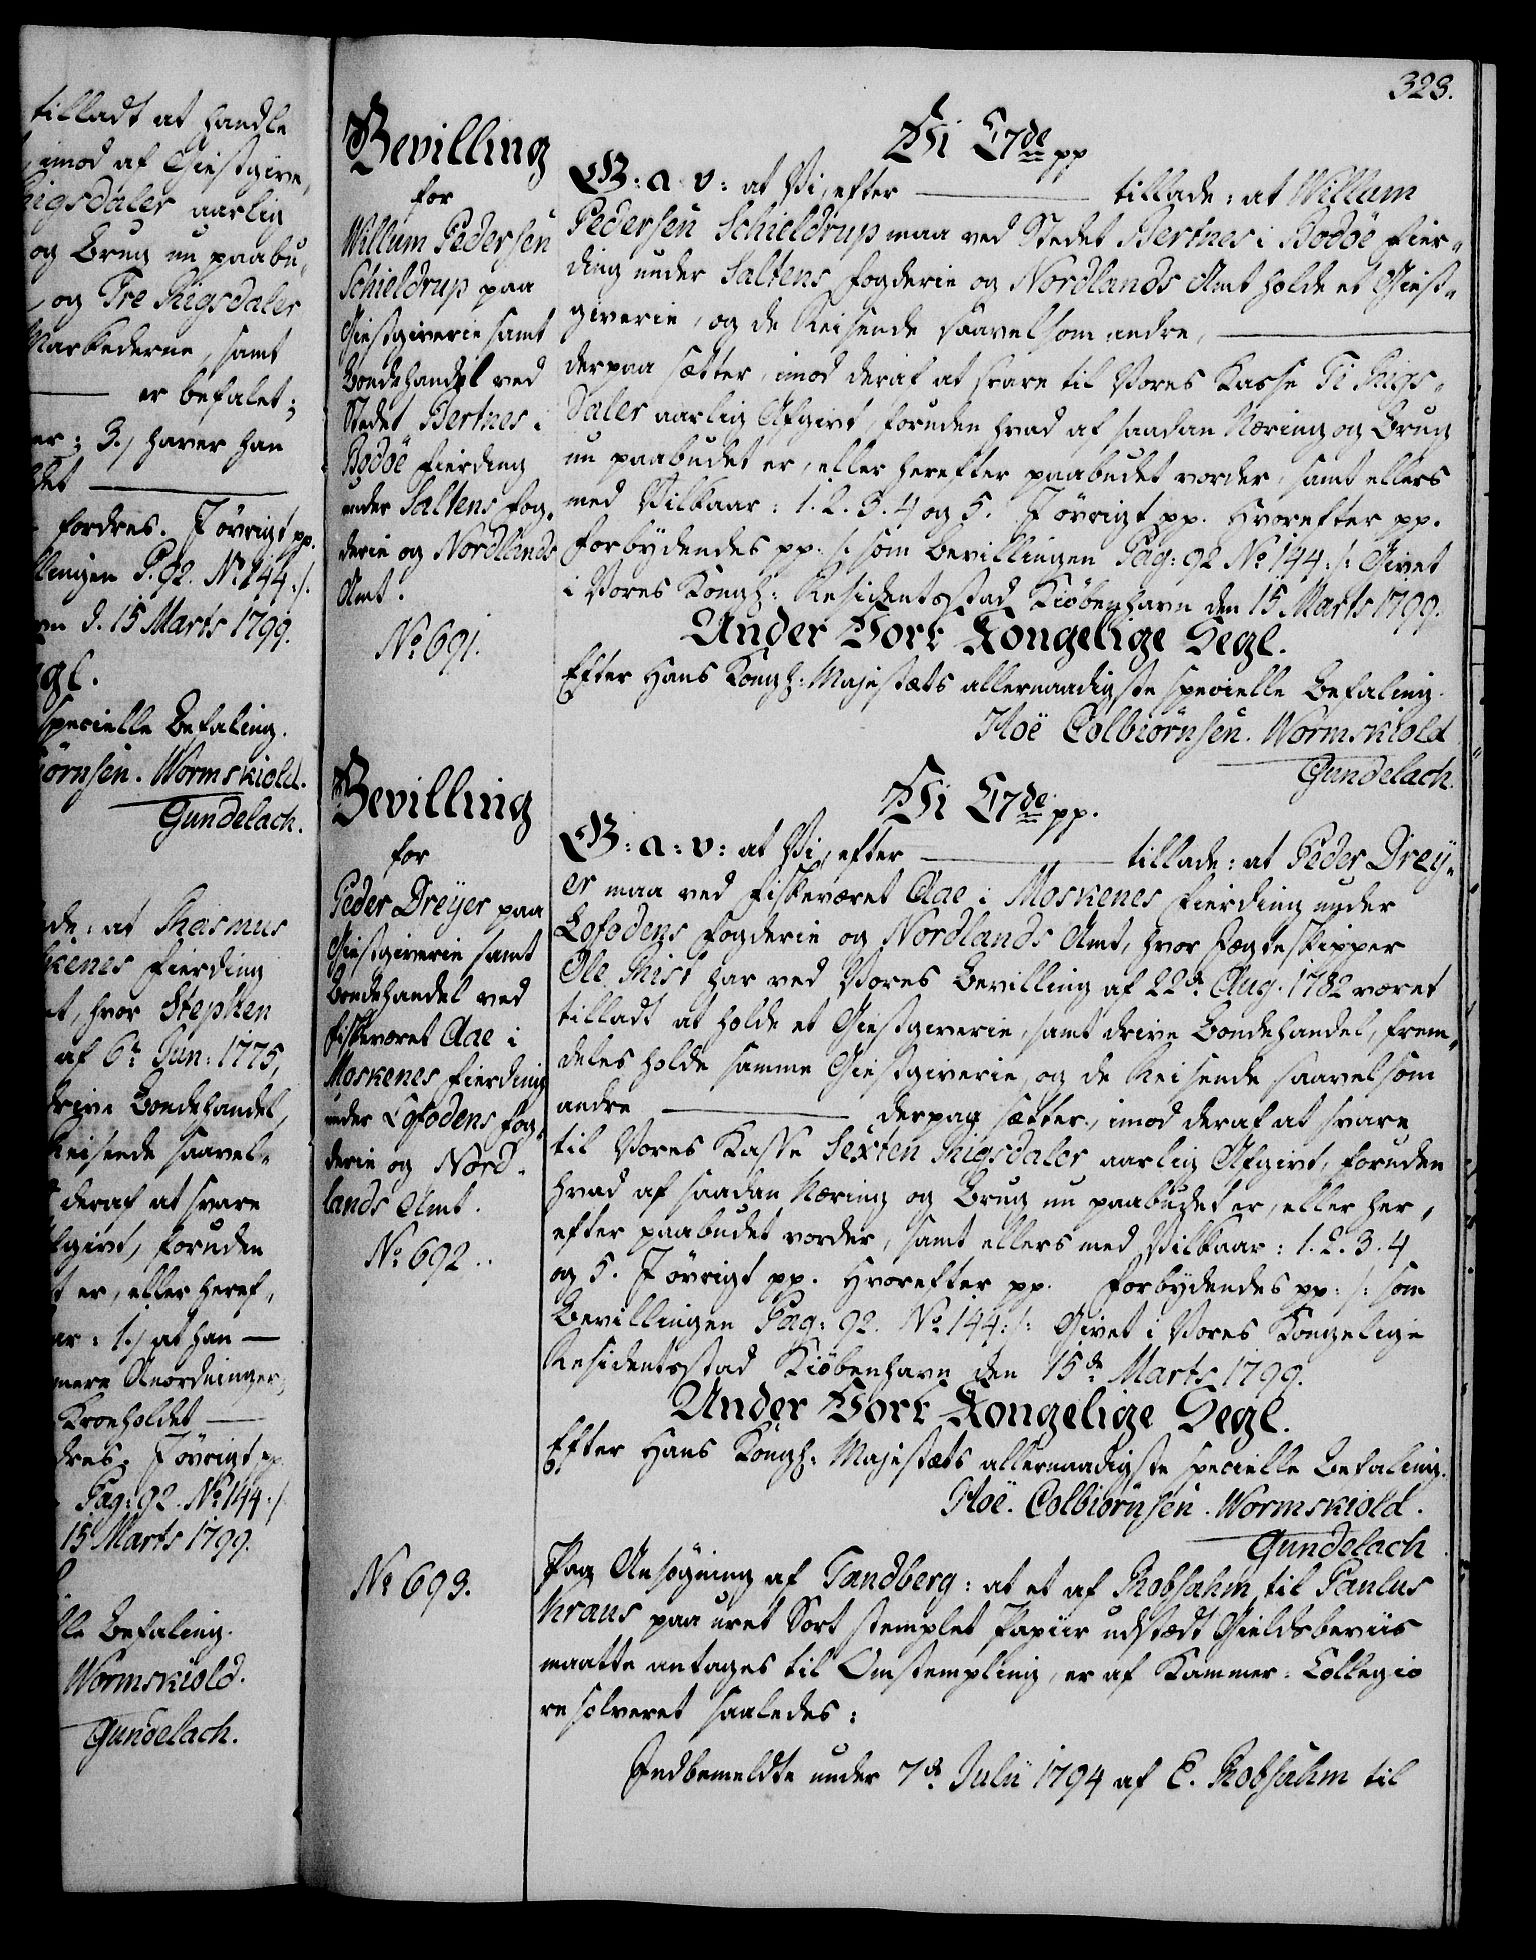 tilladt at handle
imod af Giestgive,
Rigsdaler aarlig
og Brug nu paabu,
og Tre Rigsdaler
Markederne, samt
er befalet;
3.) haver han
fordres. I øvrigt pp.
P. 92. No 144 :/:
d. 15 Marts 1799.
specielle Befaling.
Wormskiold.
Gundelach.
at Rasmus
Fierding
hvor Stephen
af 6te Jun: 1775,
drive Bondehandel,
Reisende saavel=
deraf at svare
foruden
er, eller heref,
1.) at han
Anordninger,
Kroeholdet
I øvrigt pp.
Pag: 92. No 144 :/:
15 Marts 1799.
Befaling.
Wormskiold.
Gundelach.
323.
Bevilling
for
Willum Pedersen
Schieldrup paa
Giestgiverie samt
Bondehandel ved
Stedet Bertnes i
Bodöe Fierding
under Saltens Fog,
derie og Nordlands
Amt.
No 691.
Vi C7de pp
G: a: v: at Vi, efter ——— tillade: at Willum
Pedersen Schieldrup maa ved Stedet Bertnes i Bodöe Fier=
ding under Saltens Fogderie og Nordlands Amt holde et Giest=
giverie, og de Reisende saavelsom andre, ———
derpaa sætter, imod deraf at svare til Vores Kasse Ti Rigs=
daler aarlig Afgivt, foruden hvad af saadan Næring og Brug
nu paabudet er, eller herefter paabudet vorder, samt ellers
med Vilkaar: 1. 2. 3. 4 og 5. I øvrigt pp. Hvorefter pp.
Forbydendes pp. /: som Bevillingen Pag: 92 No 144 :/: Givet
i Vores Kongl: Residentsstad Kiøbenhavn den 15 Marts 1799.
Under Vort Kongelige Segl.
Efter Hans Kongl: Majestæts allernaadigste specielle Befaling.
Hoë Colbiörnsen. Wormskiold
Gundelach.
Bevilling
for
Peder Dreyer paa
Giestgiverie samt
Bondehandel ved
Fiskeværet Aae i
Moskenes Fierding
under Lofodens Fog,
derie og Nord=
lands Amt.
No 692.
Vi C7de pp.
G: a: v: at Vi, efter ——— tillade: at Peder Drey=
er maa ved Fiskeværet Aae i Moskenes Fierding under
Lofodens Fogderie og Nordlands Amt, hvor Jægteskipper
Ole Rist har ved Vores Bevilling af 22de Aug. 1782 været
tilladt at holde et Giestgiverie, samt drive Bondehandel, frem,
deles holde samme Giestgiverie, og de Reisende saavelsom
andre ——— derpaa sætter, imod deraf at svare
til Vores Kasse Sexten Rigsdaler aarlig Afgivt, foruden
hvad af saadan Næring og Brug nu paabudet er, eller her,
efter paabudet vorder, samt ellers med Vilkaar: 1. 2. 3. 4
og 5. I øvrigt pp. Hvorefter pp. Forbydendes pp: /: som
Bevillingen Pag: 92. No 144 :/: Givet i Vores Kongelige
Residentsstad Kiøbenhavn den 15de Marts 1799.
Under Vort Kongelige Segl.
Efter Hans Kongl: Majestæts allernaadigste specielle Befaling.
Hoë. Colbiörnsen. Wormskiold.
Gundelach
No 693.
Paa Ansøgning af Tandberg: at et af Robsahm til Paulus
Kraus paa uret Sort stemplet Papiir udstædt Gieldsbeviis
maatte antages til Omstempling, er af Kammer-Collegio
resolveret saaledes:
Indbemeldte under 7de Julii 1794 af C. Robsahm til